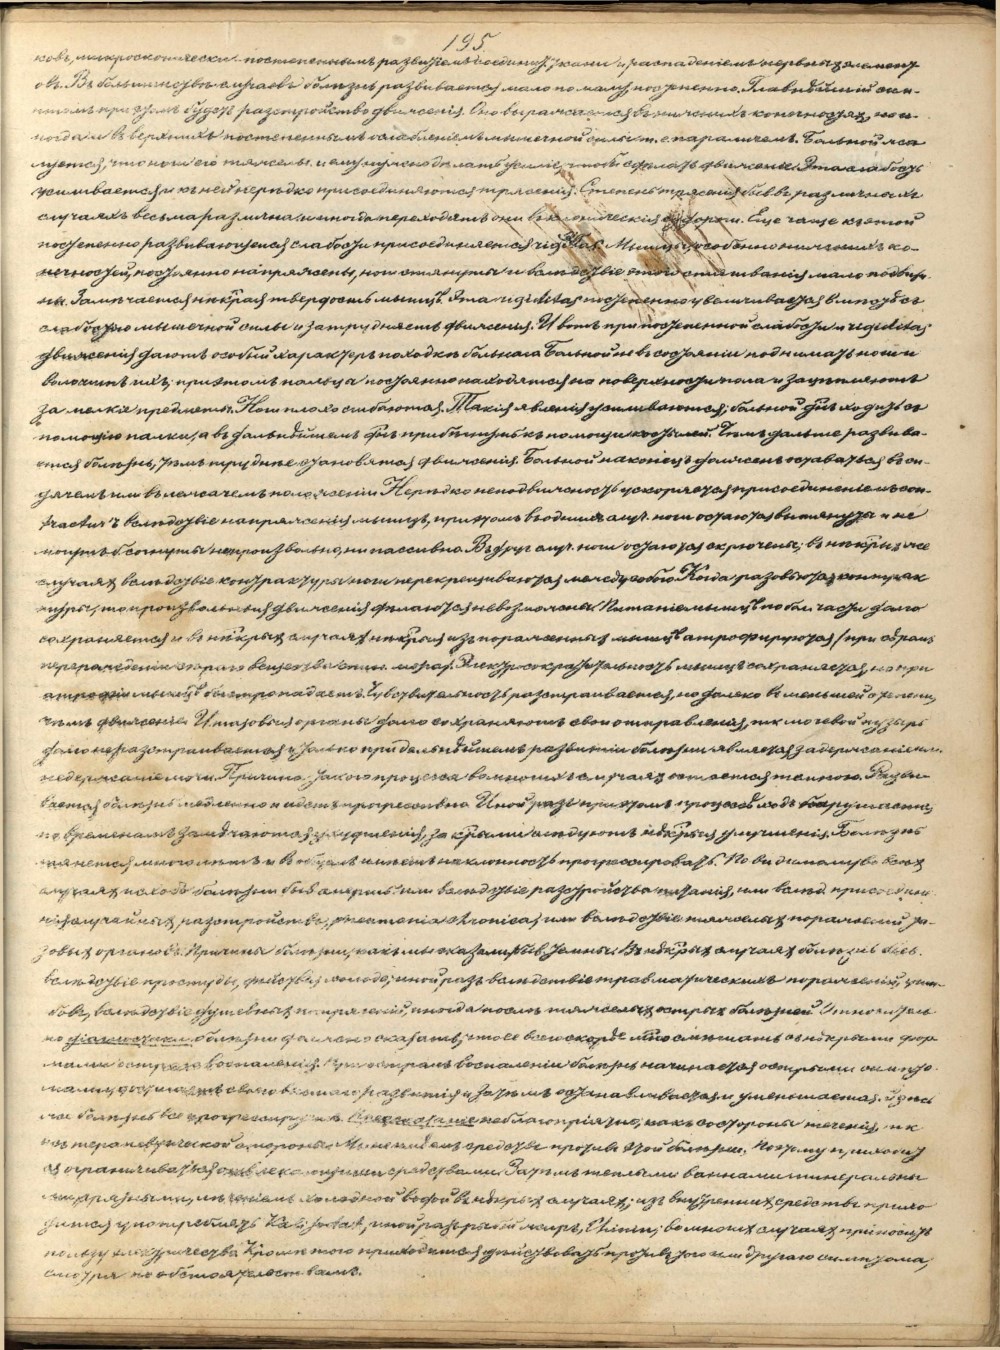 195.
ковъ, микроскопически постепеннымъ развитіемъ соединит. ткани и распаденіемъ нервныхъ элемент
овъ. Въ большинствѣ случаевъ болѣзнь развивается мало по малу, постепенно. Главнѣйшій сим-
птомъ при этомъ будетъ разстройство движенія. Оно выражается въ нижнихъ конечностяхъ, но и-
ногда и въ верхнихъ постепеннымъ ослабленіемъ мышечной силы т. е. параличемъ. Больной жа
луется, что ноги его тяжелы, и ему нужно дѣлать усиліе, чтобъ сдѣлать движеніе. Эта слабость
усиливается и къ ней нерѣдко присоединяются трясенія. Степень трясенія быв. въ различныхъ
случаяхъ весьма различна и иногда переходятъ они въ клоническія судороги. Еще чаще къ этой
постепенно развивающейся слабости присоединяется rigiditas. Мышцы, особенно нижнихъ ко-
нечностей, постоянно напряжены, ноги стянуты и вслѣдствіе этого стягиванія мало подвиж-
ны. Замѣчается нѣкрая твердость мышцъ. Эта rigiditas постепенно увеличивается вмѣстѣ съ
слабостью мышечной силы и затрудняетъ движенія. И вотъ при постепенной слабости и rigiditas
движенія даютъ особый характеръ походкѣ больнаго. Больной не въ состояніи поднимать ноги и
волочитъ ихъ; при этомъ пальцы постоянно находятся на поверхности пола и зацѣпляютъ
за мелкіе предметы. Ноги плохо сгибаются. Такія явленія усиливаются; больной д. ходить съ
помощію палки, а въ дальнѣйшемъ д. прибѣгнуть къ помощи костылей. Чѣмъ дальше развива-
ется болѣзнь, тѣмъ труднѣе становятся движенія. Больной наконецъ долженъ оставаться въ си-
дячемъ или въ лежачемъ положеніи. Нерѣдко неподвижность ускоряется присоединеніемъ con-
tractur'ъ вслѣдствіе напряженія мышцъ, при этомъ въ однихъ случ. ноги остаются вытянуты и не
могутъ б. согнуты ни произвольно, ни пассивно. Въ друг. случ. ноги остаются скрючены; въ нѣкрыхъ же
случаяхъ вслѣдствіе контрактуры ноги перекрещиваются между собою. Когда разовьются контрак
туры, то произвольныя движенія дѣлаются невозможны. Питаніе мышцъ по бол. части долго
сохраняется и въ нѣкрыхъ случаяхъ нѣкрыя изъ пораженныхъ мышцъ атрофируются (при
перерожденіи сѣраго вещества спин. мозга). Электросократительность мышцъ сохраняется, но при
атрофіи мышцъ быстро падаетъ. Чувствительность разстраивается, но далеко въ меньшей степени,
чѣмъ движеніе. И тазовые органы долго сохраняютъ свои отправленія, т. к. мочевой пузырь
долго не разстраивается и только при дальнѣйшемъ развитіи болѣзни является задержаніе или
недержаніе мочи. Причина такого процесса во многихъ случаяхъ остается темною. Разви-
вается болѣзнь медленно и идетъ прогрессивно. Иной разъ при этомъ процессѣ
по временамъ замѣчаются ухудшенія, за крыми слѣдуютъ нѣкрыя улучшенія. Болѣзнь
тянется много лѣтъ и въ общемъ имѣетъ наклонность прогрессировать. По видимому во всѣхъ
случаяхъ исходъ болѣзни быв. смерть или вслѣдствіе разстройства питанія, или вслѣд. присоедине-
нія случайныхъ разстройствъ, pneumonia chronica, или вслѣдствіе тяжелыхъ пораженій та-
зовыхъ органовъ. Причины болѣзни, какъ мы сказали, быв. темны. Въ нѣкрыхъ случаяхъ болѣзнь быв.
вслѣдствіе простуды, дѣйствія холода; иной разъ вслѣдствіе травматическихъ пораженій, уши-
бовъ, вслѣдствіе душевныхъ напряженій, иногда послѣ тяжелыхъ острыхъ болѣзней. Относитель
но діагностики болѣзни должно сказать, что ее всего скорѣе можно смѣшать съ нѣкрыми фор
мами остраго воспаленія. При остромъ воспаленіи болѣзнь начинается острыми симпто-
мами, достигаетъ своего высшаго развитія и затѣмъ останавливается и уменьшается. Здѣсь
же болѣзнь все прогрессируетъ. Предсказаніе неблагопріятно, какъ со стороны теченія, т. к.
съ терапевтической стороны. Мы не имѣемъ средства противъ этой болѣзни. Потому приходит
ся ограничиваться средствами. Затѣмъ теплыми ваннами минеральны
ми, грязными, леченіемъ холодной водой въ нѣкрыхъ случаяхъ; изъ внутреннихъ средствъ прихо
дится употреблять Kali jodat., иной разъ рыбій жиръ, Chinin; во многихъ случаяхъ приноситъ
пользу электричество. Кромѣ того приходится дѣйствовать противъ того или другаго симптома,
смотря по обстоятельствамъ.